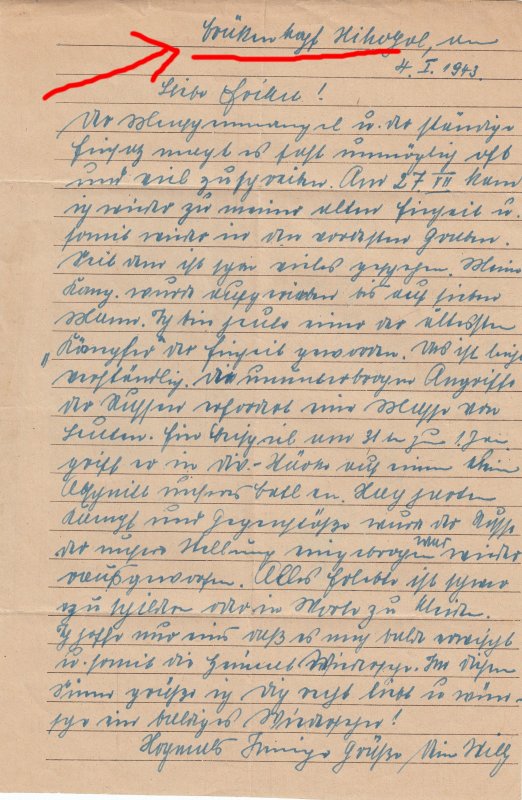 Brükenkopf Nikopol, am
4. I. 1943.
Liebe !
Der Mangel u. der ständige
Einsatz macht es fast unmöglich oft
und viel zu schreiben. Am 27. VII kam
ich wieder zu meiner alten Einheit u.
somit wieder in den vordersten Graben.
Seit dem ist schon vieles geschehen. Meine
Komp. wurde aufgerieben bis auf sieben
Mann. Ich bin heute einer der ältesten
„Kämpfer" der Einheit geworden. Das ist leicht
verständlig. Die ununterbrogen Angriffe
der Russen erfordert eine Masse von
Leuten. Ein Beispiel am 31 ten zum 1. Jan
griff er in Div.-Stärke auf einem klein
Abschnitt unseres Batl an. Nach harten
Kampf und Gegenstöße wurde der Russe
der in unsere Stellung eingebrogen war wieder
rausgeworfen. Alles Erlebte ist schwer
zu schildern oder in Worte zu kleiden.
Ich hoffe nur eins daß es mich balde erwischt
u. somit die Heimat Wiedersehe. In diesem
Sinne grüße ich dich recht lieb u wün-
sche ein baldiges Wiedersehen!
Nochmals Innige Grüße Dein Willy